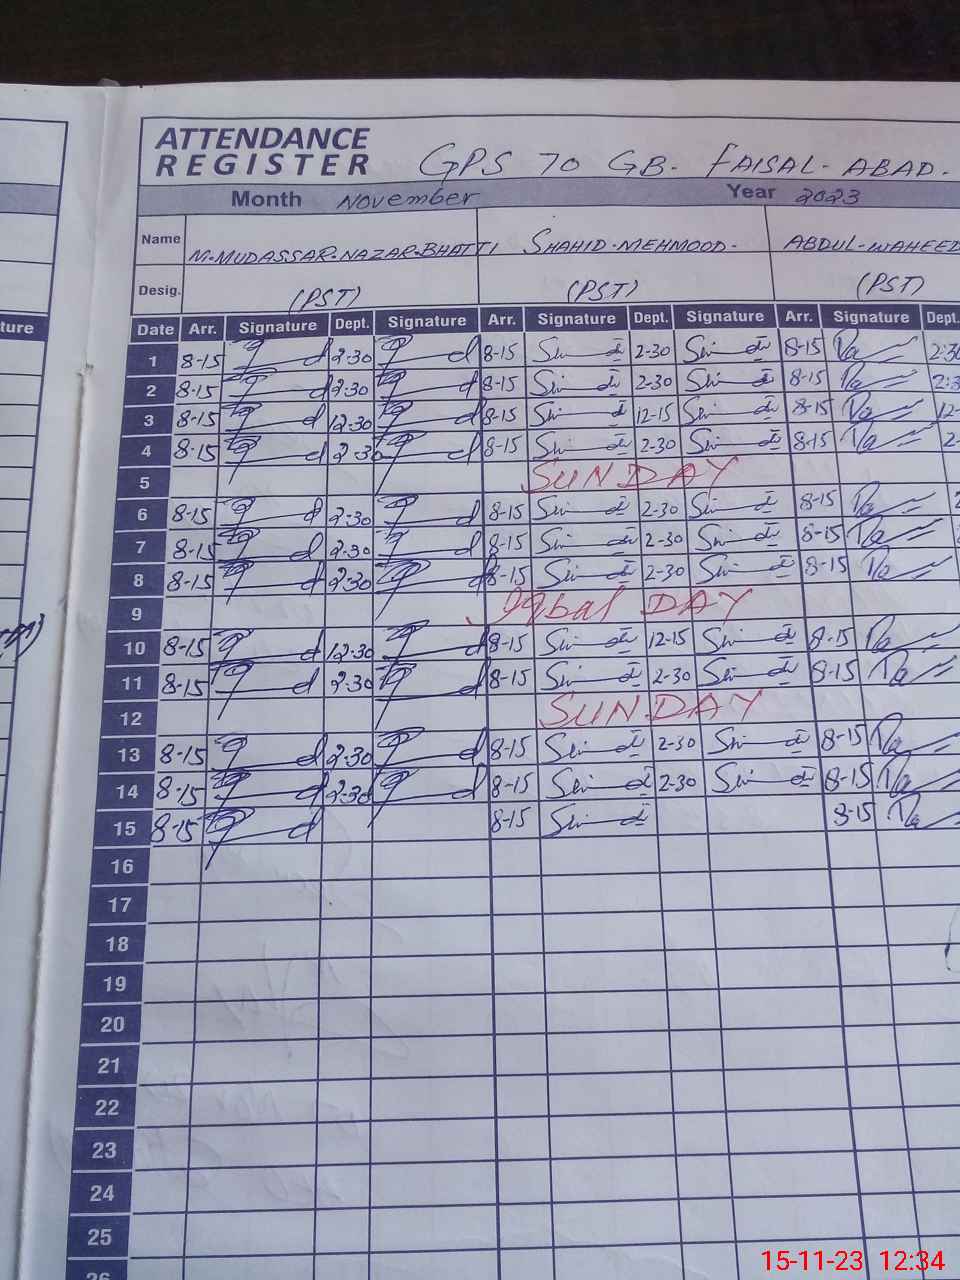 ATTENDANCE
REGISTER GPS 70 GB. FAISAL-ABAD.
Month November Year 2023
Name M.MUDASSAR.NAZAR.BHATTI SHAHID-MEHMOOD- ABDUL-WAHEED
Desig. (PST) (PST) (PST)
ture Date Arr. Signature Dept. Signature Arr. Signature Dept. Signature Arr. Signature Dept.
1 8-15 2-30 8-15 2-30 8-15 2-30
2 8-15 2-30 8-15 2-30 8-15 2-3
3 8-15 12-30 8-15 12-15 8-15 12-
4 8-15 2-30 8-15 2-30 8-15 2-
5 SUNDAY
6 8-15 2-30 8-15 2-30 8-15
7 8-15 2-30 8-15 2-30 8-15
8 8-15 2-30 8-15 2-30 8-15
9 Iqbal DAY
10 8-15 12-30 8-15 12-15 8-15
11 8-15 2-30 8-15 2-30 8-15
12 SUNDAY
13 8-15 2-30 8-15 2-30 8-15
14 8-15 2-30 8-15 2-30 8-15
15 8-15 8-15 8-15
16
17
18
19
20
21
22
23
24
25
26
15-11-23 12:34